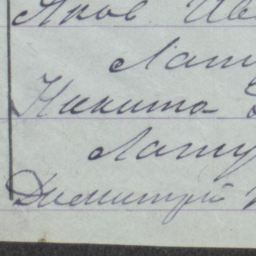 Яков Ив
Лату
Никита
Лату
Димитрий